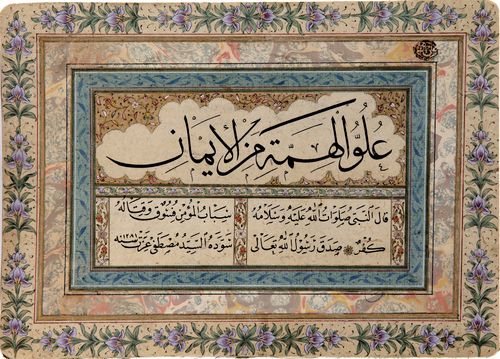 علو الهمة من الايمان
قال النبي صلوات الله عليه وسلامه سباب المؤمن فسوق وقتاله
كفر صدق رسول الله تعالى سوده السيد مصطفى عزت سنه ١٢٨١